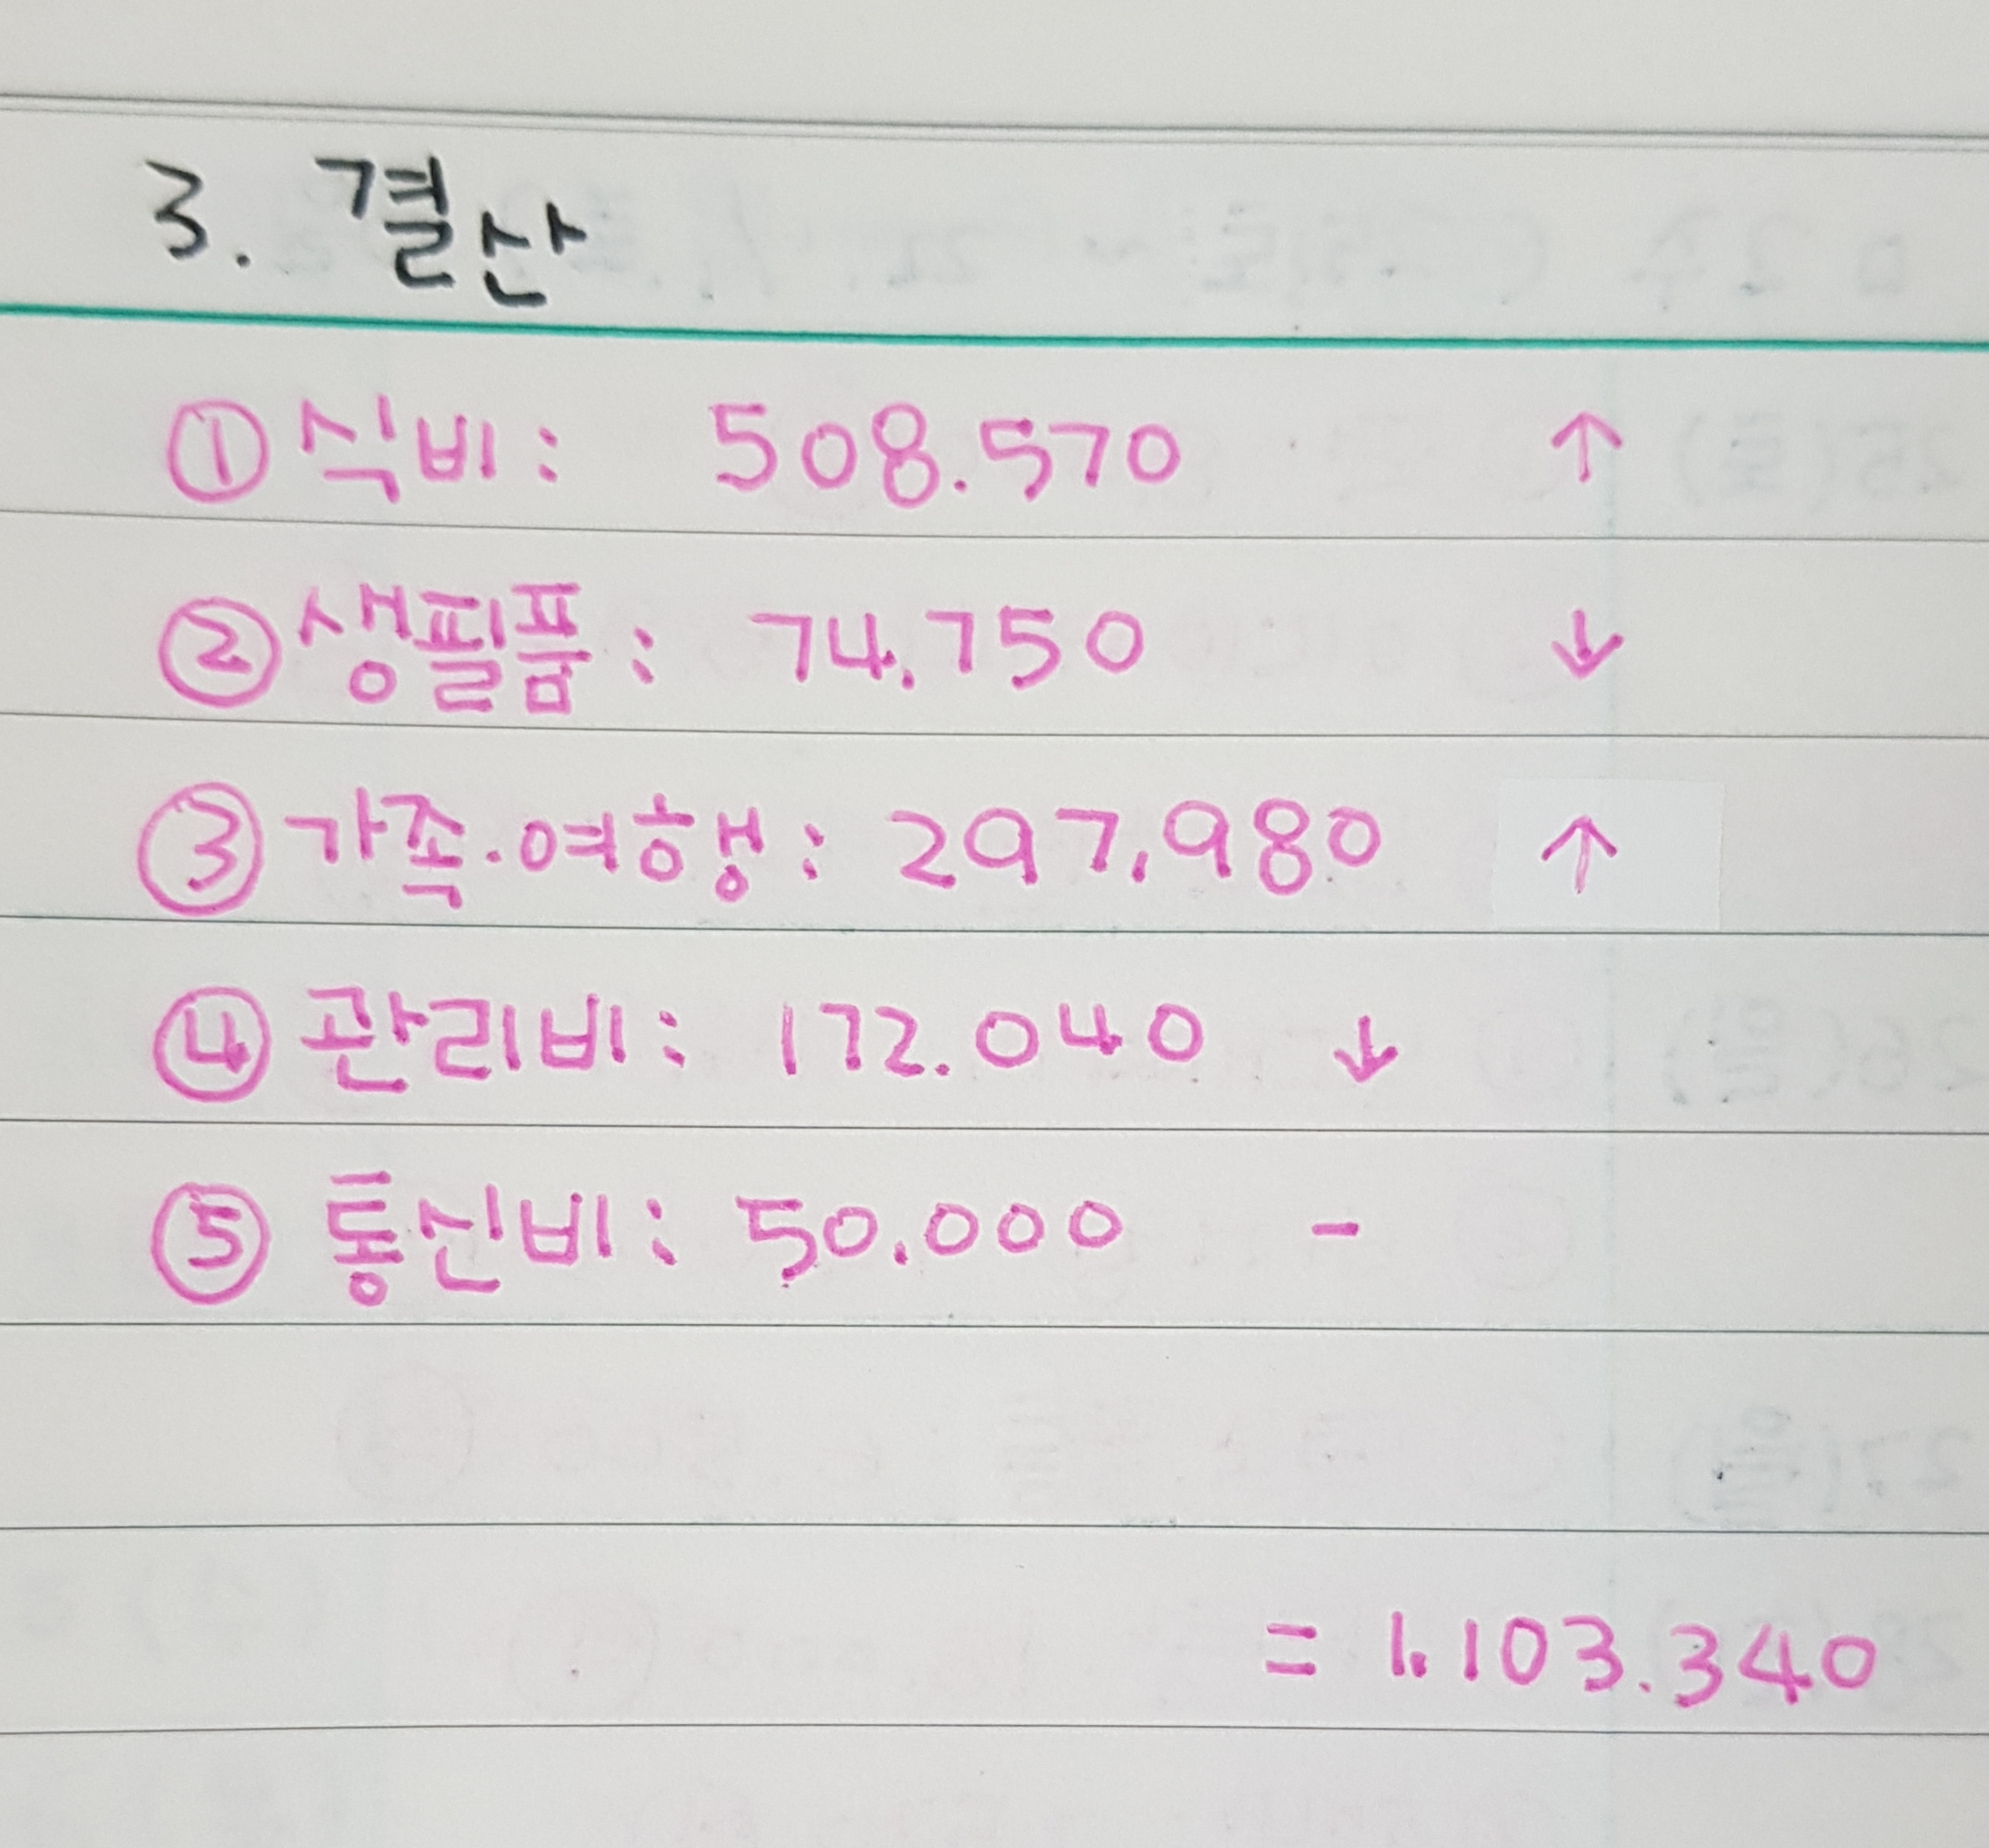 3. 결산
① 식비 : 508.570 ↑
② 생필품 : 74,750 ↓
③ 가족.여행 : 297,980 ↑
④ 관리비 : 172.040 ↓
⑤ 통신비 : 50.000 -
= 1.103.340